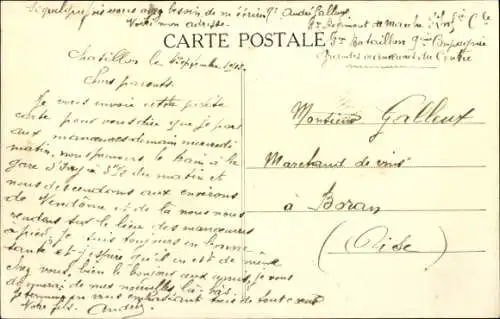 Si quelquefois vous avez besoin de m'écrire Mr André Galleux
Voici mon adresse. Régiment de Marche Inf
Bataillon Compagnie
Grandes manœuvres du Centre
CARTE POSTALE
Chatillon le Septembre
Chers parents.
Je vous envoie cette petite
carte pour vous dire que je pars
aux manœuvres demain mercredi
matin, nous prenons le train à la
gare d' du matin et
nous descendons aux environs
de Vendôme et de là nous nous
rendons sur le lieu des manœuvres
à pied. Je suis toujours en bonne
santé et j'espère qu'il en est de même
chez vous, bien le bonjour aux je vous
de mes nouvelles là-bas.
Je termine en vous embrassant tous de tout cœur
Votre fils. André
Monsieur Galleux
Marchand de vins
à Boran
(Oise)